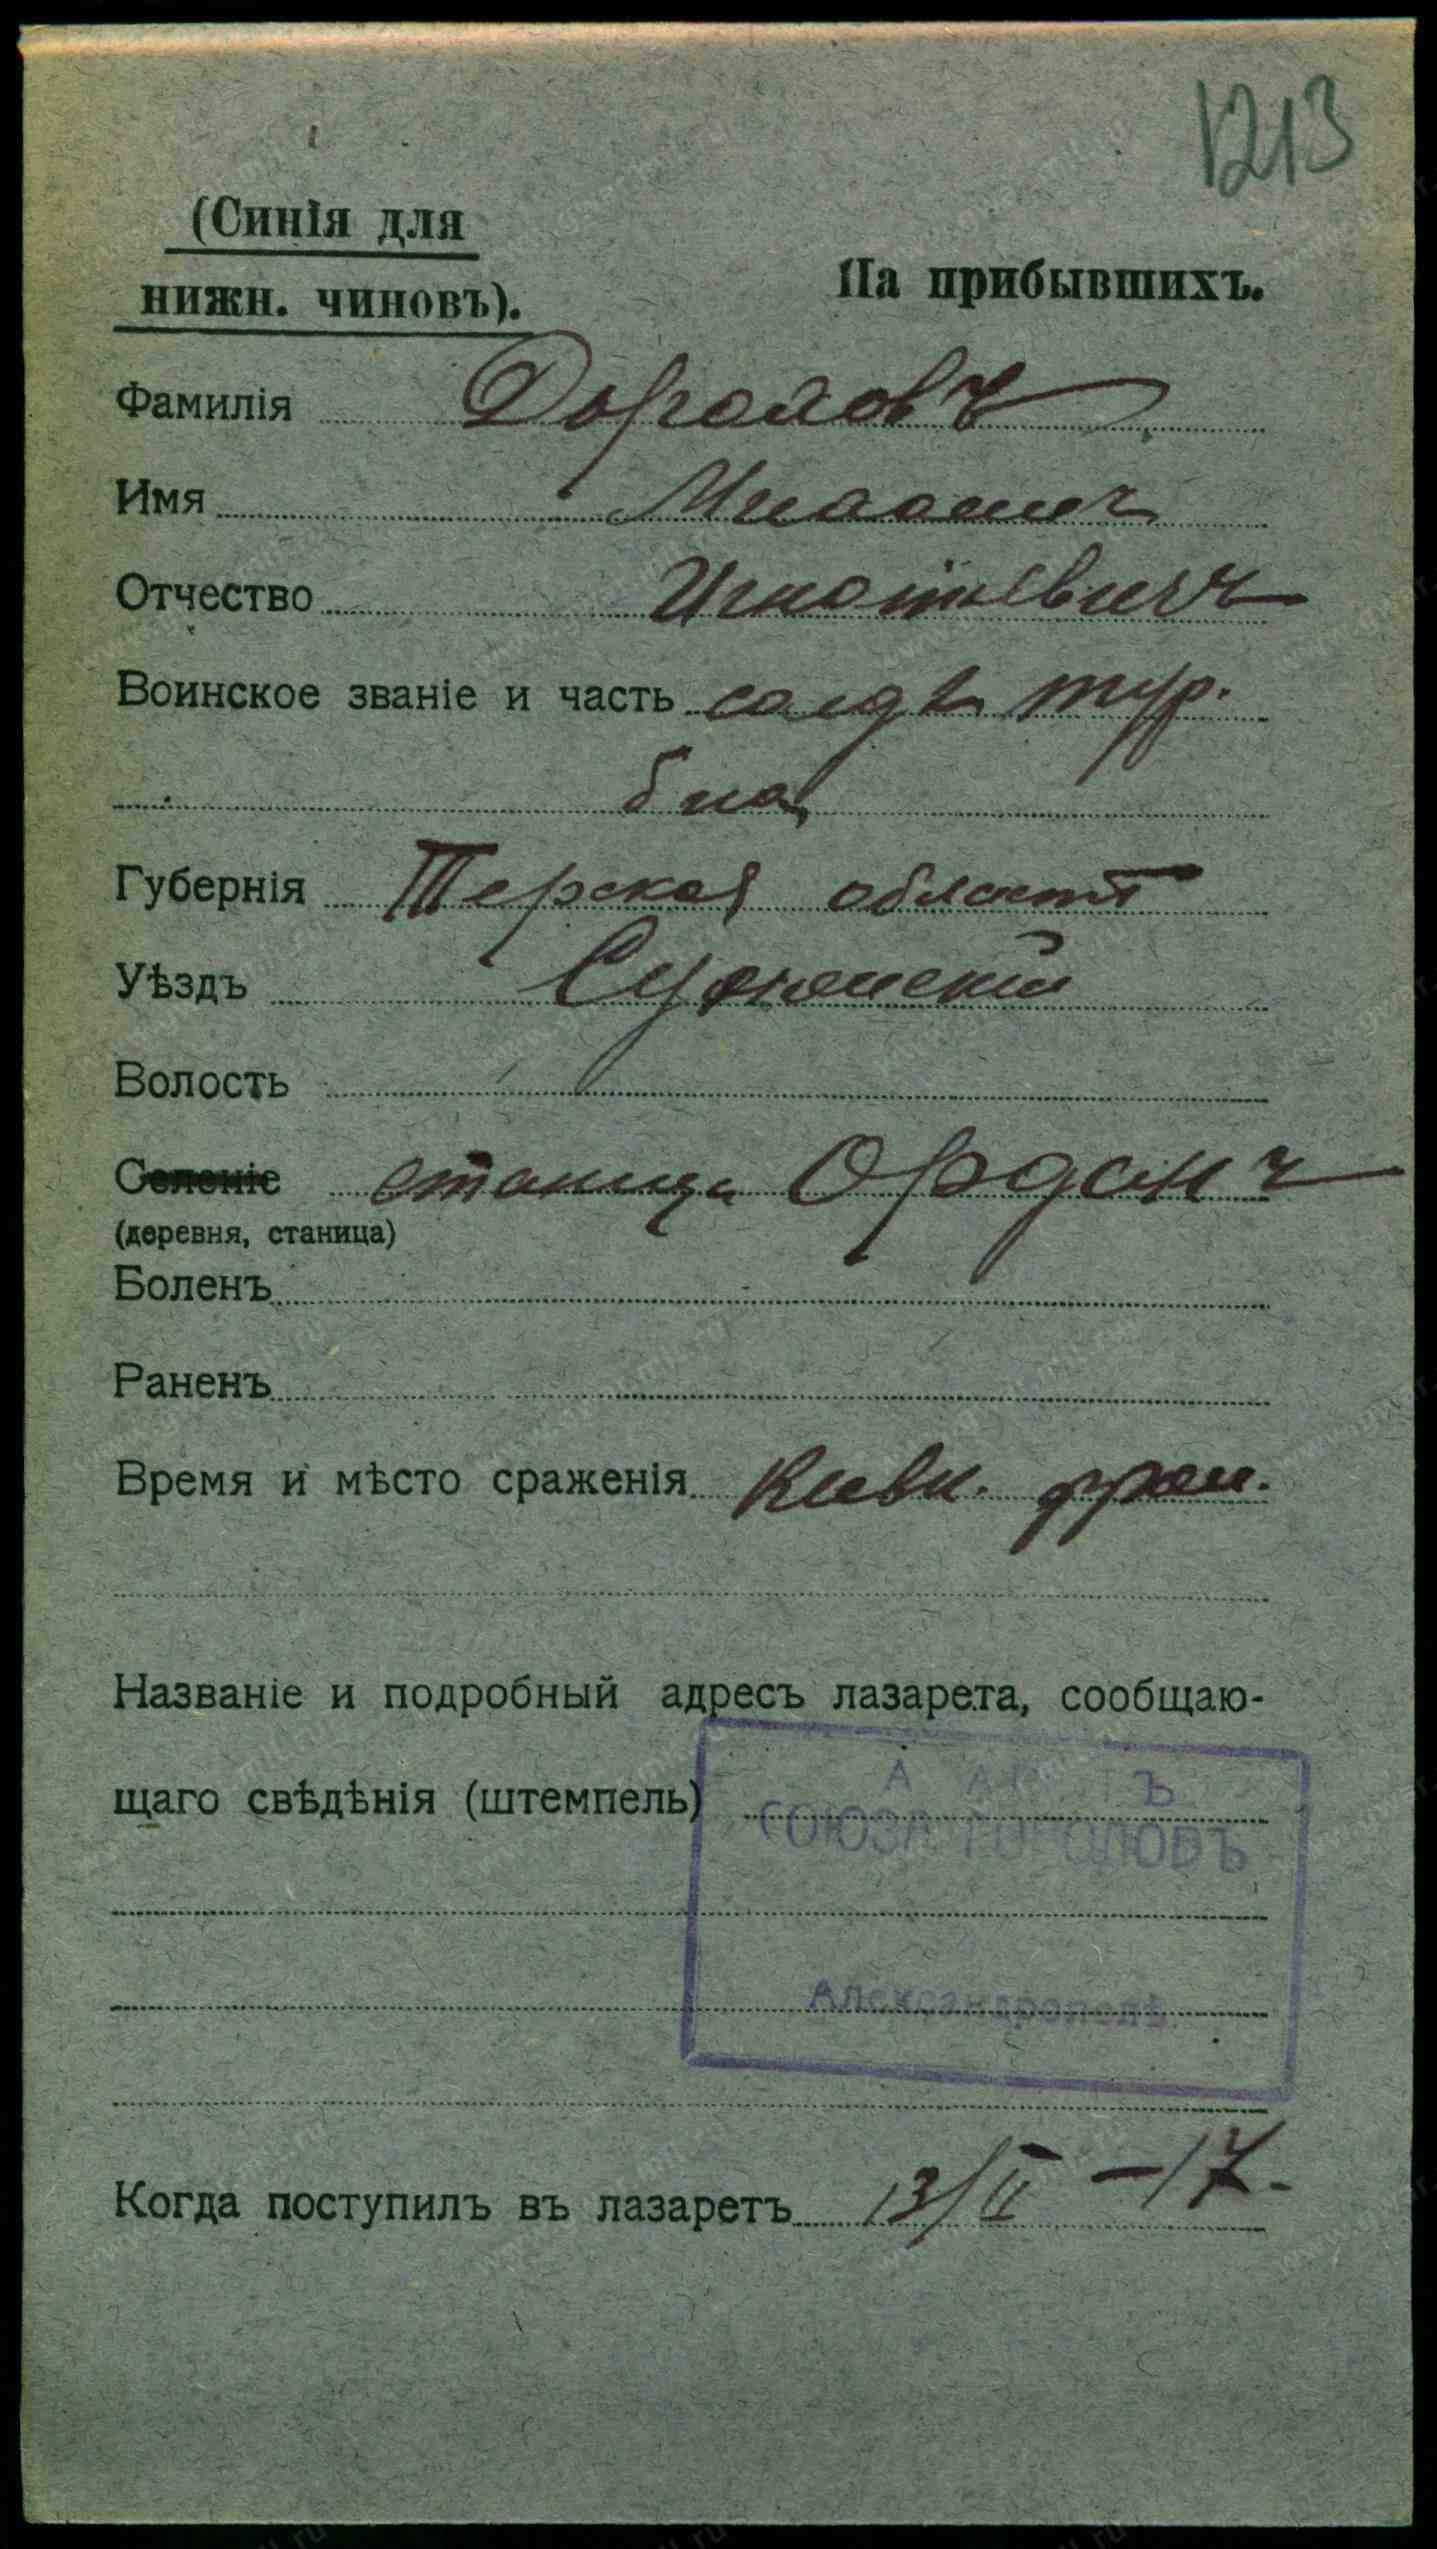 1213
(Синія для
нижн. чиновъ).
На прибывшихъ.
Фамилія
Имя
Отчество Игнатьевичъ
Воинское званіе и часть солд. тур.
Губернія Терская область
Уѣздъ Сунженскій
Волость
Селеніе станица Ордонъ
(деревня, станица)
Боленъ
Раненъ
Время и мѣсто сраженія Кавк. фрон.
Названіе и подробный адресъ лазарета, сообщаю-
щаго свѣдѣнія (штемпель)
СОЮЗА ГОРОДОВЪ
Александрополь.
Когда поступилъ въ лазаретъ 13/II -17.